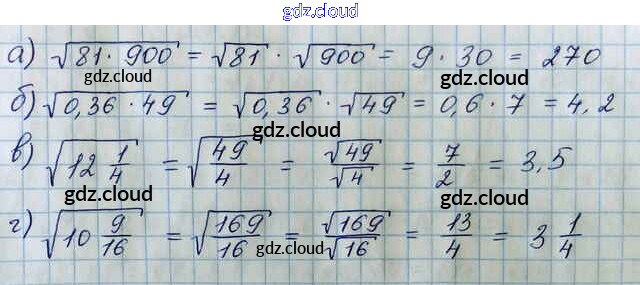 gdz.cloud
а) √81 · 900 = √81 · √900 = 9 · 30 = 270
gdz.cloud gdz.cloud
б) √0,36 · 49 = √0,36 · √49 = 0,6 · 7 = 4,2
gdz.cloud gdz.cloud
в) √12 1/4 = √49/4 = √49/√4 = 7/2 = 3,5
gdz.cloud gdz.cloud
г) √10 9/16 = √169/16 = √169/√16 = 13/4 = 3 1/4
gdz.cloud gdz.cloud gdz.cloud